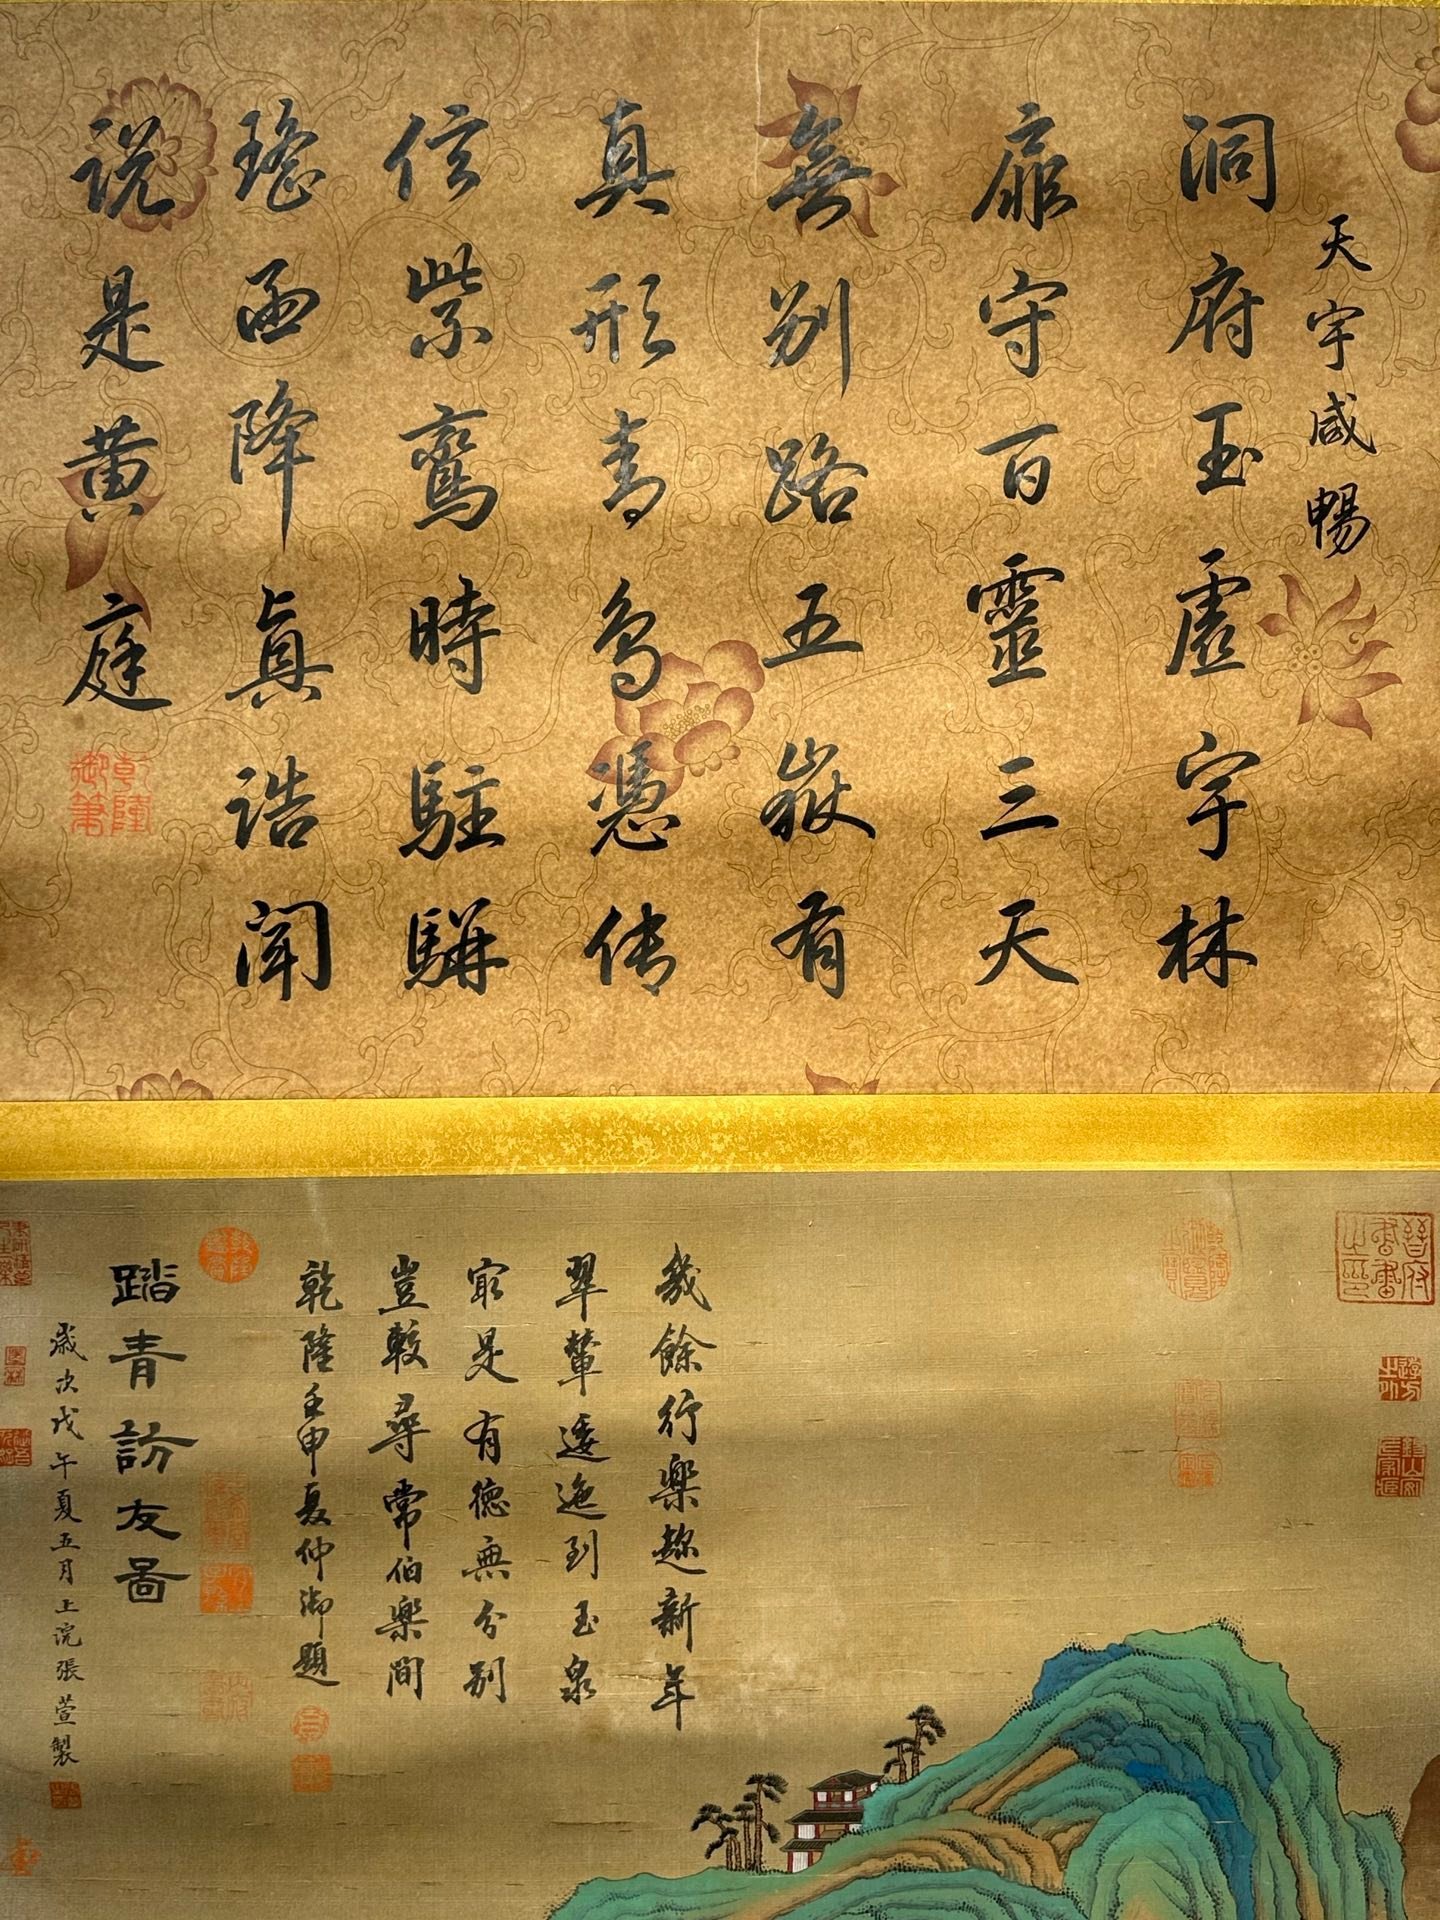 天宇咸暢
洞府玉虚宇林
扉守百靈三天
無别路五嶽有
真形青鳥憑传
信紫鸞時駐駢
瑤函降真誥聞
说是黄庭
乾隆
御筆
幾餘行樂趂新年
翠輦逶迤到玉泉
㝡是有德無分别
豈較尋常伯樂間
乾隆壬申夏仲御題
踏青訪友圖
歲次戊午夏五月上浣張萱製
晉府
書畫
之印